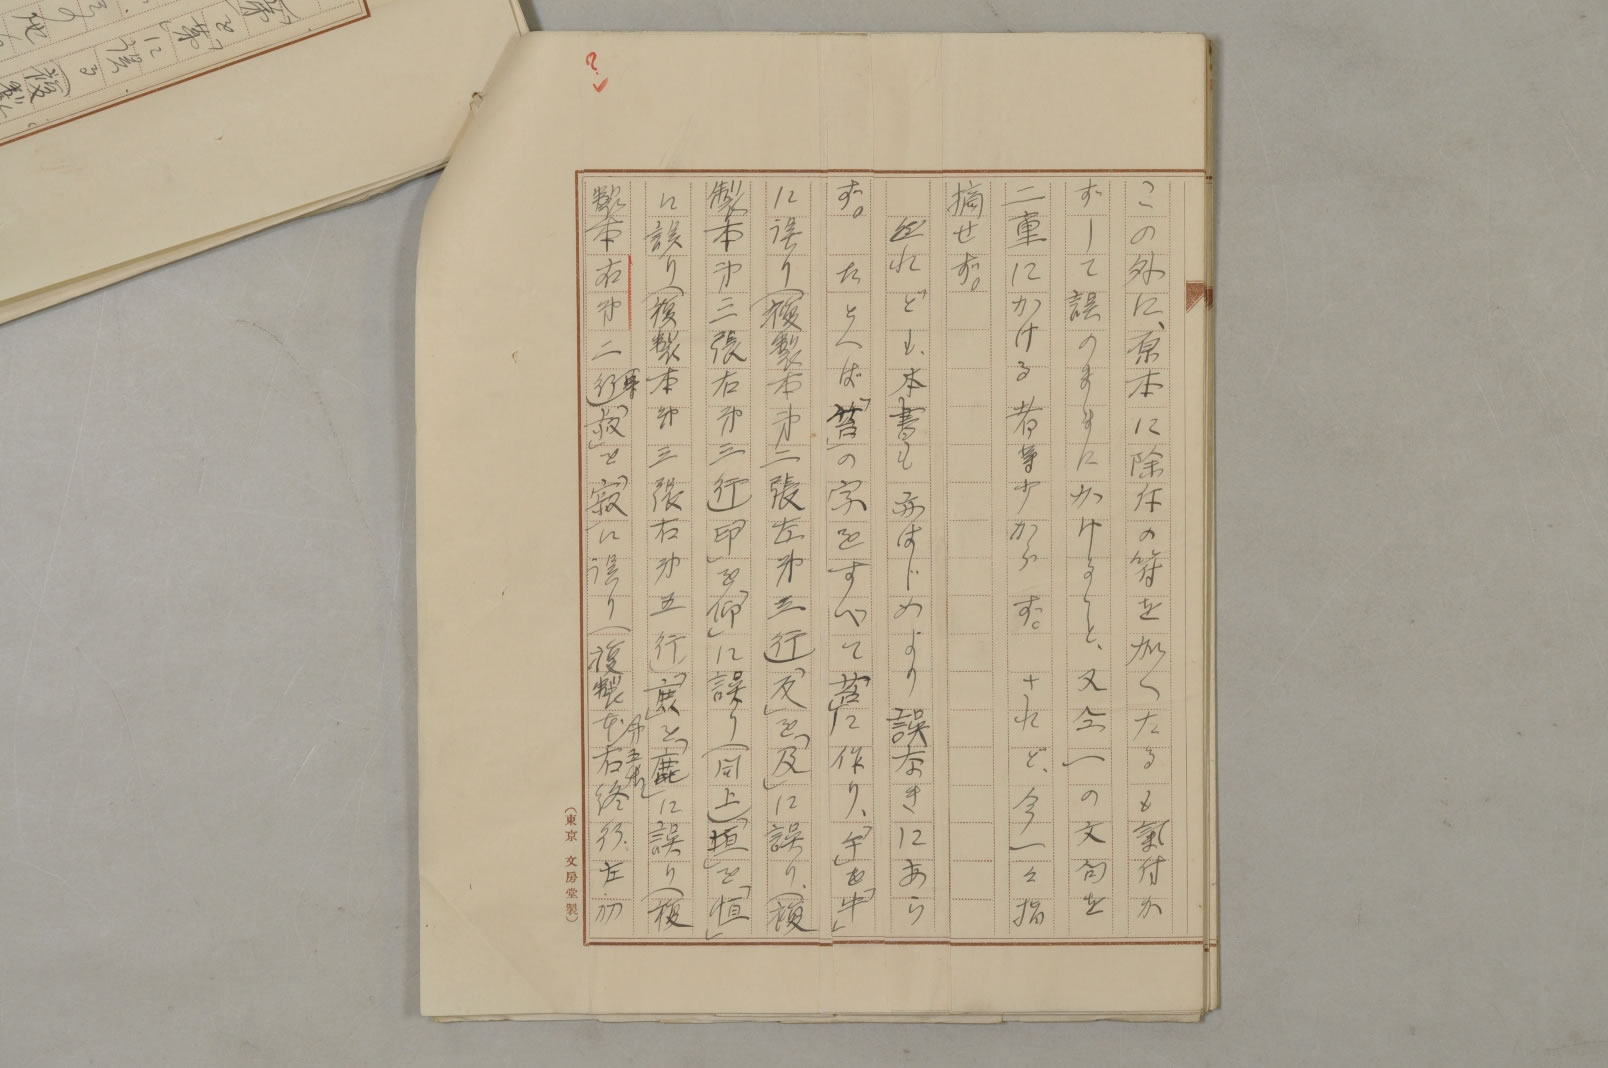 この外に、原本に除体の符を加へたるも気付か
ずして誤のまゝにかけること、又全一の文句を
二重にかける者等少からず。されど、今一々指
摘せず。
然れども、本書も亦はじめより誤なきにあら
ず。たとへば「答」の字をすべて「荅」に作り、「午」を「牛」
に誤り(複製本第二張左第三行)「反」を「及」に誤り、(複
製本第三張右第三行)「印」を「仰」に誤り(同上)「垣」を「恒」
に誤り(複製本第三張右第五行)「麁」を「鹿」に誤り(複
製本右第二行)「叔」を「寂」に誤り(複製本右終行、左初
(東京 文房堂製)